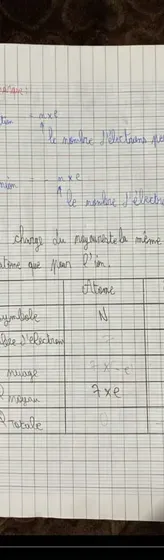 = n x e
le nombre d'électrons
= - n x e
le nombre d'électr
charge du noyau reste la même
atome que pour l'ion.
Atome
symbole N
bre d'électrons 7
nuage 7 x - e
Q noyau 7 x e
Q totale 0